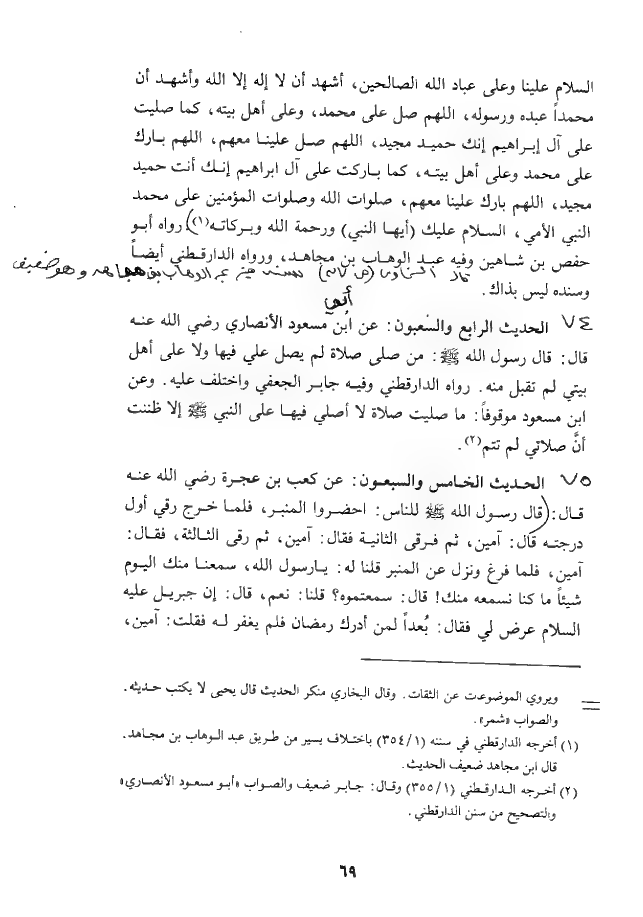 السلام علينا وعلى عباد الله الصالحين، أشهد أن لا إله إلا الله وأشهد أن
محمداً عبده ورسوله، اللهم صل على محمد، وعلى أهل بيته، كما صليت
على آل إبراهيم إنك حميد مجيد، اللهم صل علينا معهم، اللهم بارك
على محمد وعلى أهل بيته، كما باركت على آل ابراهيم إنك أنت حميد
مجيد، اللهم بارك علينا معهم، صلوات الله وصلوات المؤمنين على محمد
النبي الأمي، السلام عليك (أيها النبي) ورحمة الله وبركاته(١) رواه أبو
حفص بن شاهين وفيه عبد الوهاب بن مجاهد، ورواه الدارقطني أيضاً
قال السخاوي (ص) سنده فيه عبد الوهاب بن مجاهد وهو ضعيف
وسنده ليس بذاك.
أبي
٧٤ الحديث الرابع والسبعون: عن ابن مسعود الأنصاري رضي الله عنه
قال: قال رسول الله ﷺ: من صلى صلاة لم يصل علي فيها ولا على أهل
بيتي لم تقبل منه. رواه الدارقطني وفيه جابر الجعفي واختلف عليه. وعن
ابن مسعود موقوفاً: ما صليت صلاة لا أصلي فيها على النبي ﷺ إلا ظننت
أنَّ صلاتي لم تتم(٢).
٧٥ الحديث الخامس والسبعون: عن كعب بن عجرة رضي الله عنه
قال: (قال رسول الله ﷺ للناس: احضروا المنبر، فلما خرج رقي أول
درجته قال: آمين، ثم فرقى الثانية فقال: آمين، ثم رقى الثالثة، فقال:
آمين، فلما فرغ ونزل عن المنبر قلنا له: يارسول الله، سمعنا منك اليوم
شيئاً ما كنا نسمعه منك! قال: سمعتموه؟ قلنا: نعم، قال: إن جبريل عليه
السلام عرض لي فقال: بُعداً لمن أدرك رمضان فلم يغفر له فقلت: آمين،
ويروي الموضوعات عن الثقات. وقال البخاري منكر الحديث قال يحيى لا يكتب حديثه.
والصواب «شمر».
(١) أخرجه الدارقطني في سننه (١/٣٥٤) باختلاف يسير من طريق عبد الوهاب بن مجاهد.
قال ابن مجاهد ضعيف الحديث.
(٢) أخرجه الدارقطني (١/٣٥٥) وقال: جابر ضعيف والصواب «أبو مسعود الأنصاري»
والتصحيح من سنن الدارقطني.
٦٩